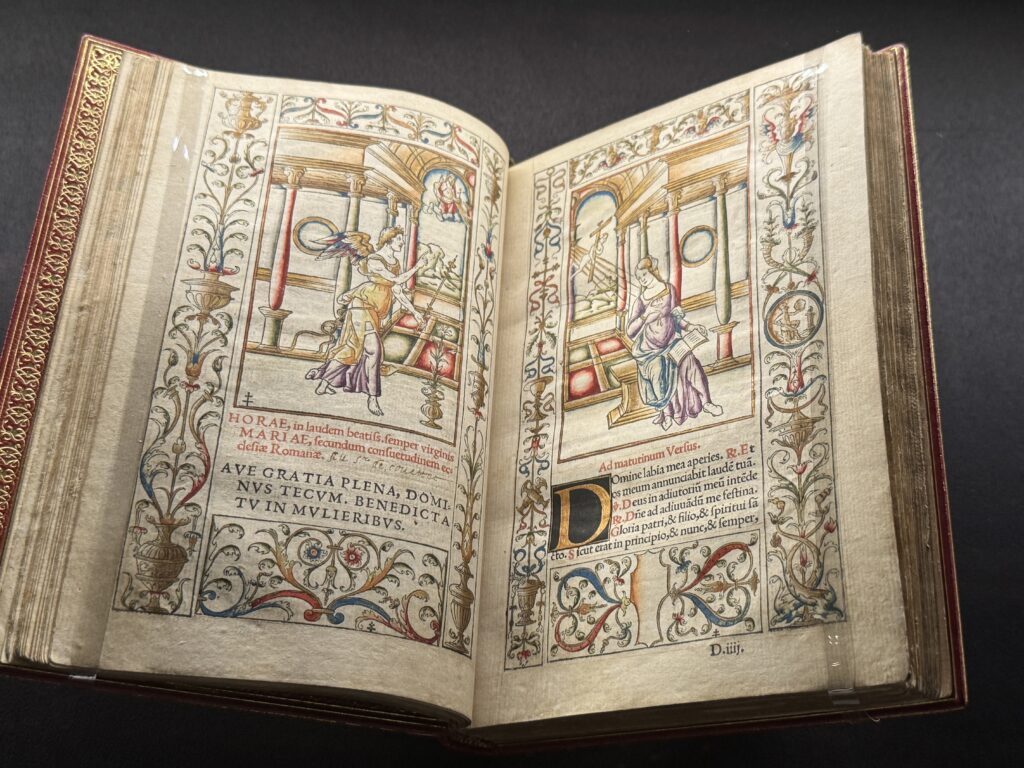 HORAE, in laudem beatiss. semper virginis
MARIAE, secundum consuetudinem ec
clesiæ Romanæ.
AVE GRATIA PLENA, DOMI
NVS TECVM. BENEDICTA
TV IN MVLIERIBVS.
Ad matutinum Versus.
DOmine labia mea aperies. ℟. Et
os meum annunciabit laudē tuā.
℣. Deus in adiutoriū meū intēde
℟. Dñe ad adiuuādū me festina.
Gloria patri, & filio, & spiritui sā
cto. Sicut erat in principio, & nunc, & semper,
D.iiij.